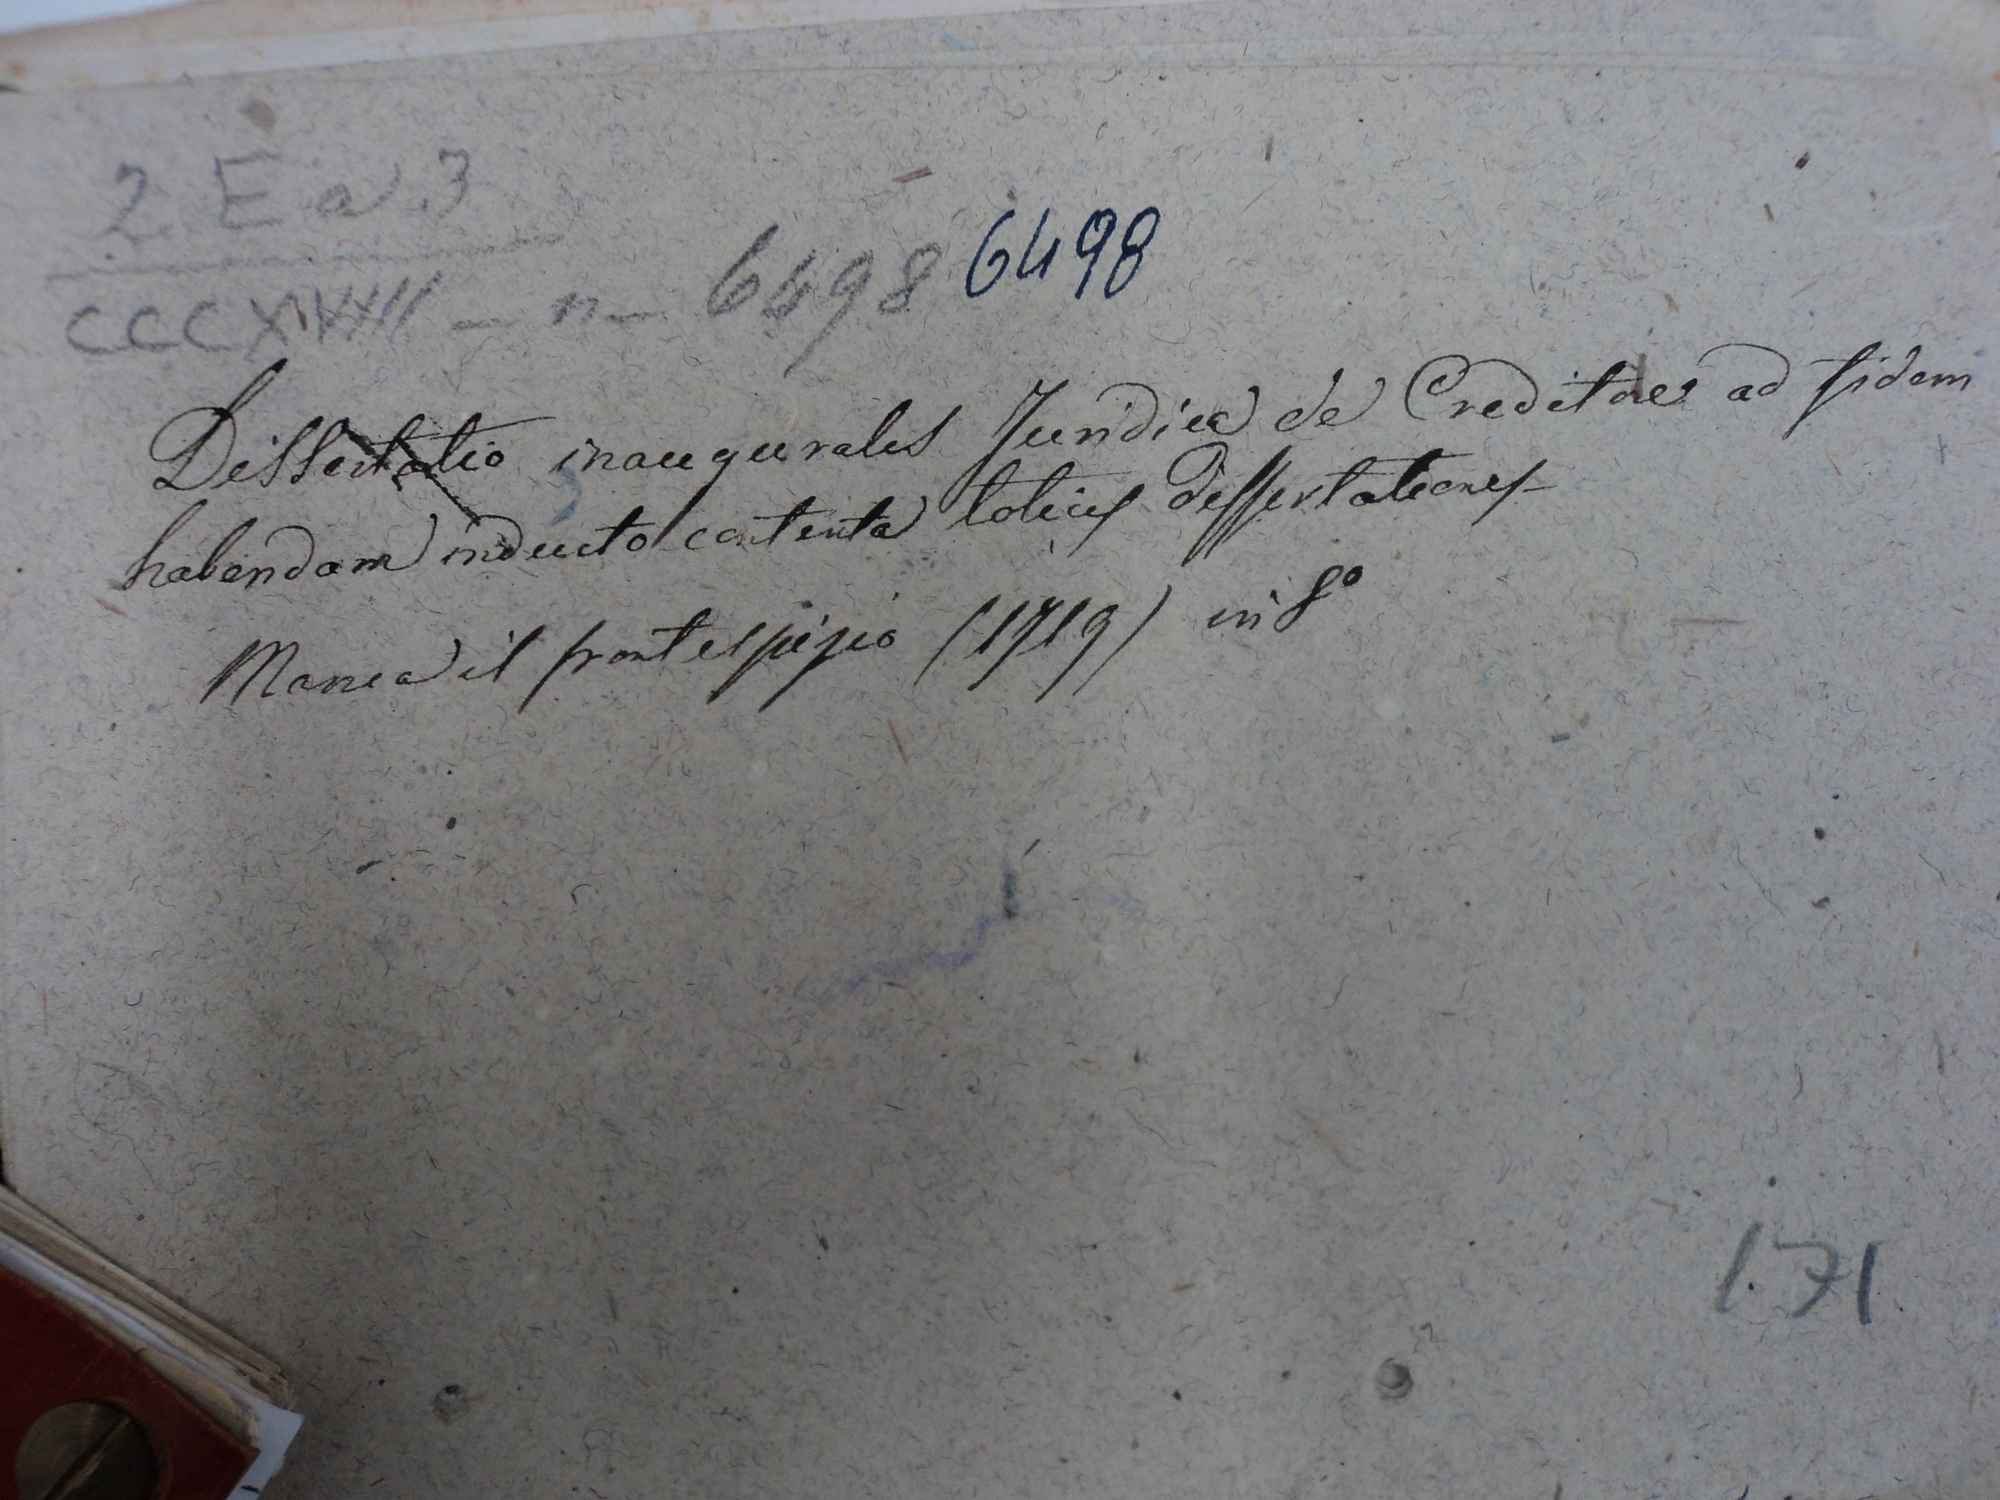 2. E a. 3
CCCXXXII – n – 6498 6498
Dissertatio inaugurales Juridica de Creditore ad fidem
habendam inducto contenta totius dissertationes
Manca il frontespizio (1719) in 8º
1.71.